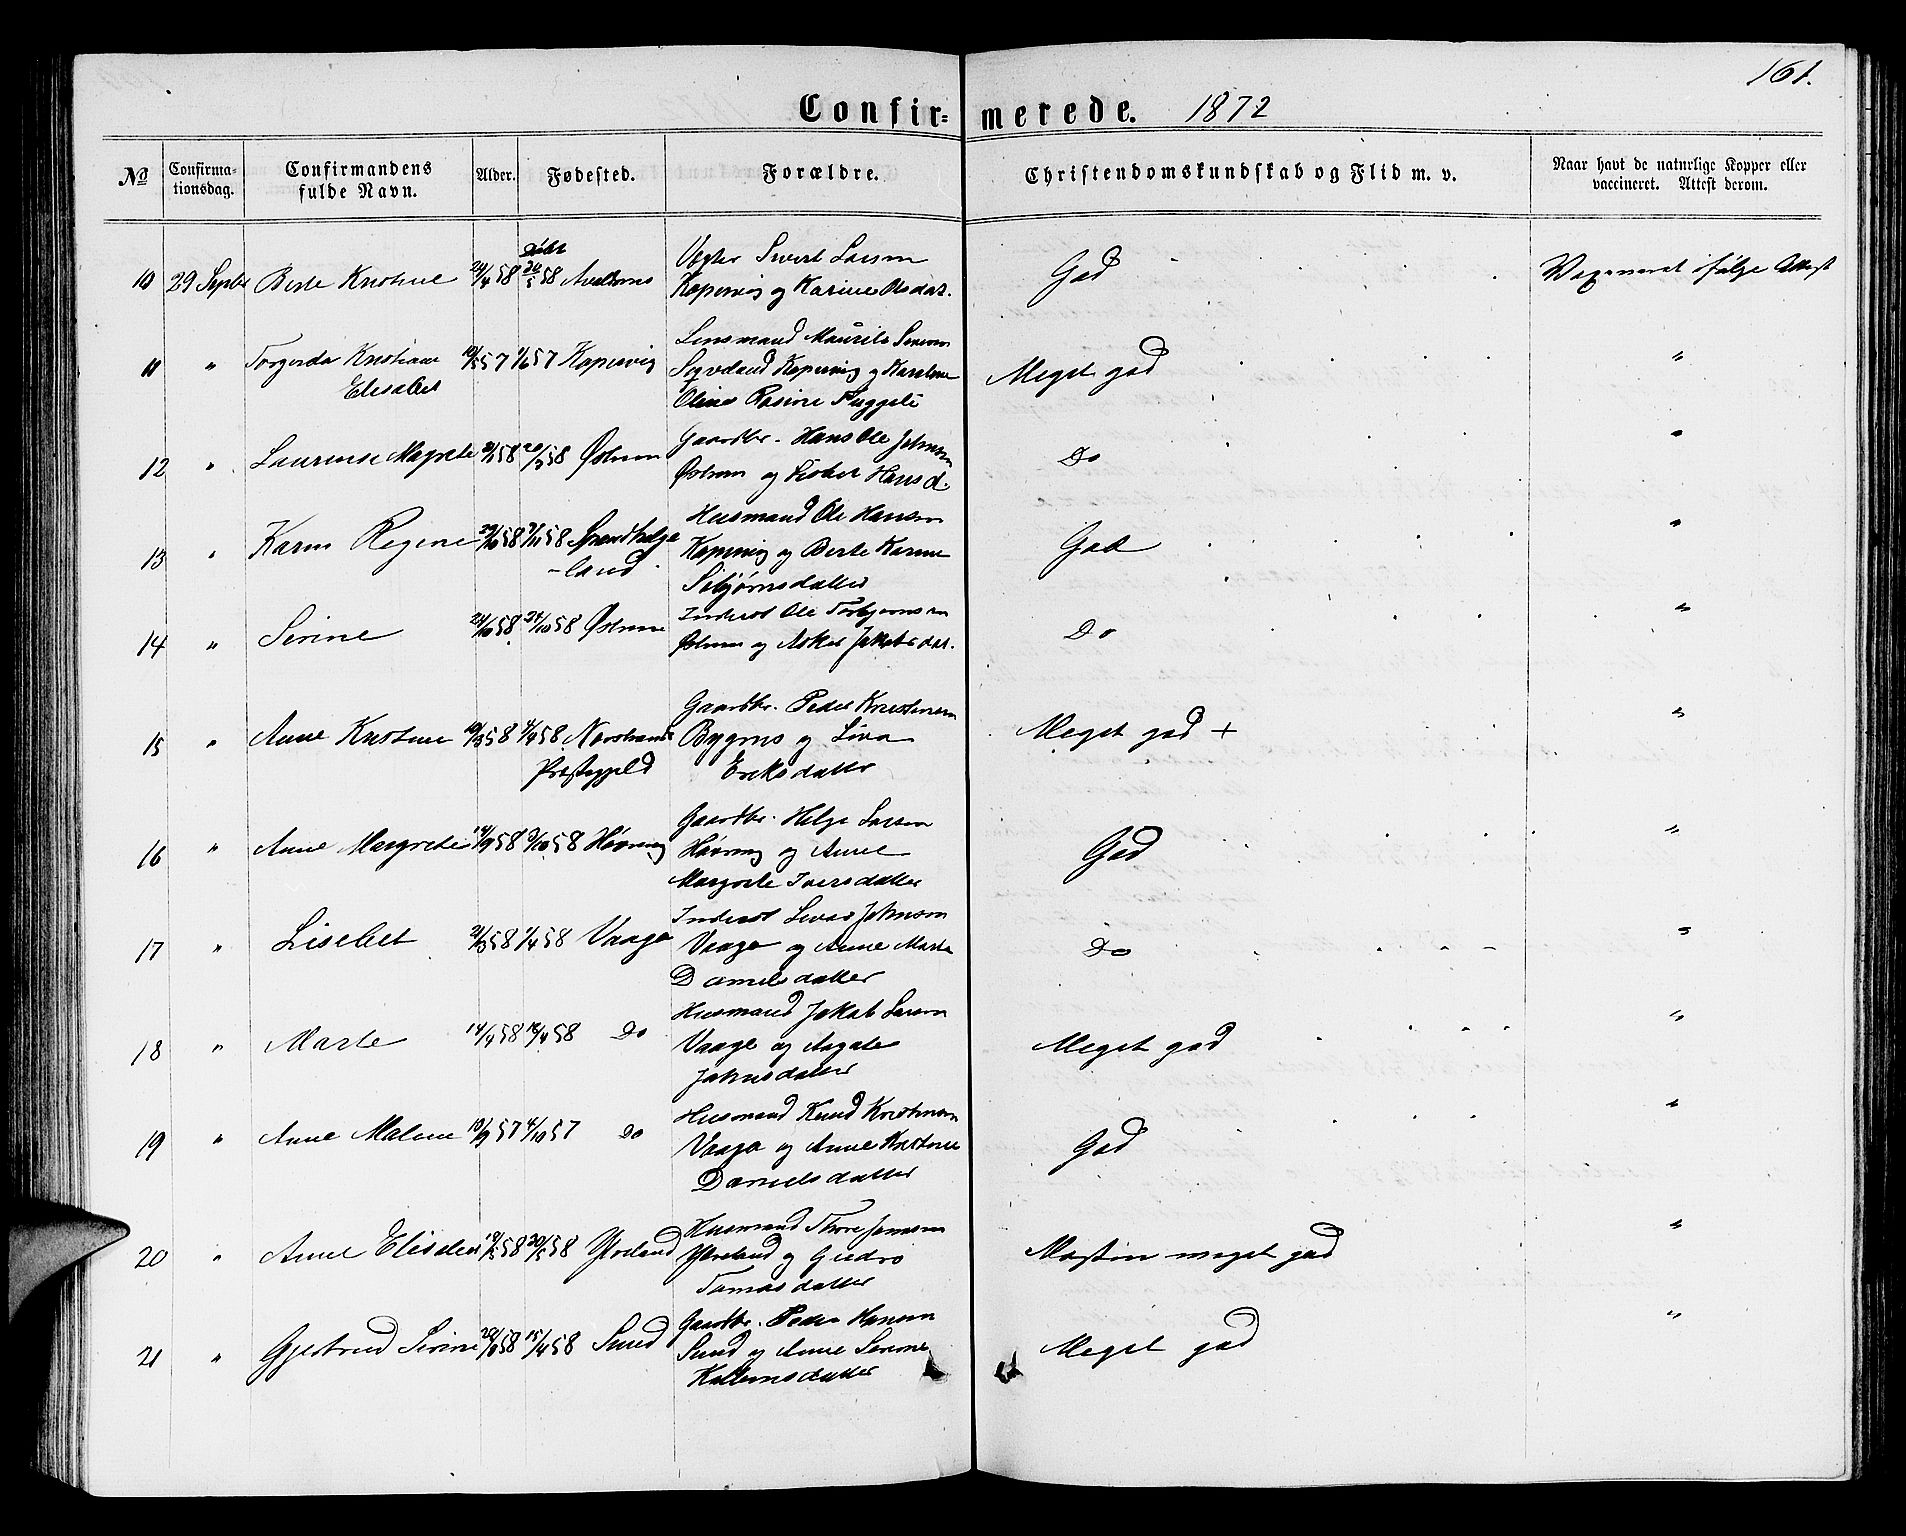 161.
Confirmerede. 1872
No
Confirmationsdag.
Confirmandens fulde Navn.
Alder.
Fødested.
Forældre.
Christendomskundskab og Flid m. v.
Naar havt de naturlige Kopper eller vaccineret. Attest derom.
10 29 Septbr Berte Kristine 24/4 58 Døbt 24/5 58
Larsen
Kopervig og Karine Olsdat.
God
Vaxineret ifølge Attest
11 " Torgerda Kristiane 57 57 Kopervig
Elisabet
Lensmand Maurits Sørensen
Kopervig og Karoline
Oline Rasine
Meget god
"
12 " Laurense Margrete 58 58 Østrem
Gaardbr. Hans Ole Johnsen
Østrem og Lisbet Hansd.
Do
"
13 " Karen Regine 29/10 58 7/11 58
land
Husmand Ole Hansen
Kopervig og Berte Karine
God
"
14 " Serine 58 24/10 58 Østrem
Inderst Ole Torbjørnsen
Østrem og Jakobsdat.
Do
"
15 " Anne Kristine 58 4/4 58 Nerstrand
Præstegjeld
Gaardbr. Peder Kristensen
Bygnes og Siva
Eriksdatter
Meget god +
"
16 " Anne Margrete 14/9 58 3/10 58 Høvring
Gaardbr. Helge Larsen
Høvring og Anne
Margrete Iversdatter
God
"
17 " Lisebet 21/3 58 58 Vaage
Inderst Johnsen
Vaage og Anne Marta
Danielsdatter
Do
"
18 " Marte 14/4 58 18/4 58 Do
Husmand Jakob Larsen
Vaage og Aagate
Johnsdatter
Meget god
"
19 " Anne Malene 10/9 57 4/10 57 Do
Husmand Knud Kristensen
Vaage og Anne Kristine
Danielsdatter
God
"
20 " Anne Elisabet 58 58
Husmand Thore Jansen
og Gudro
Tomasdatter
Næsten meget god
"
21 " Gjertrud Serine 58 58 Sund
Gaardbr. Peder Hansen
Sund og Anne Serine
Meget god
"